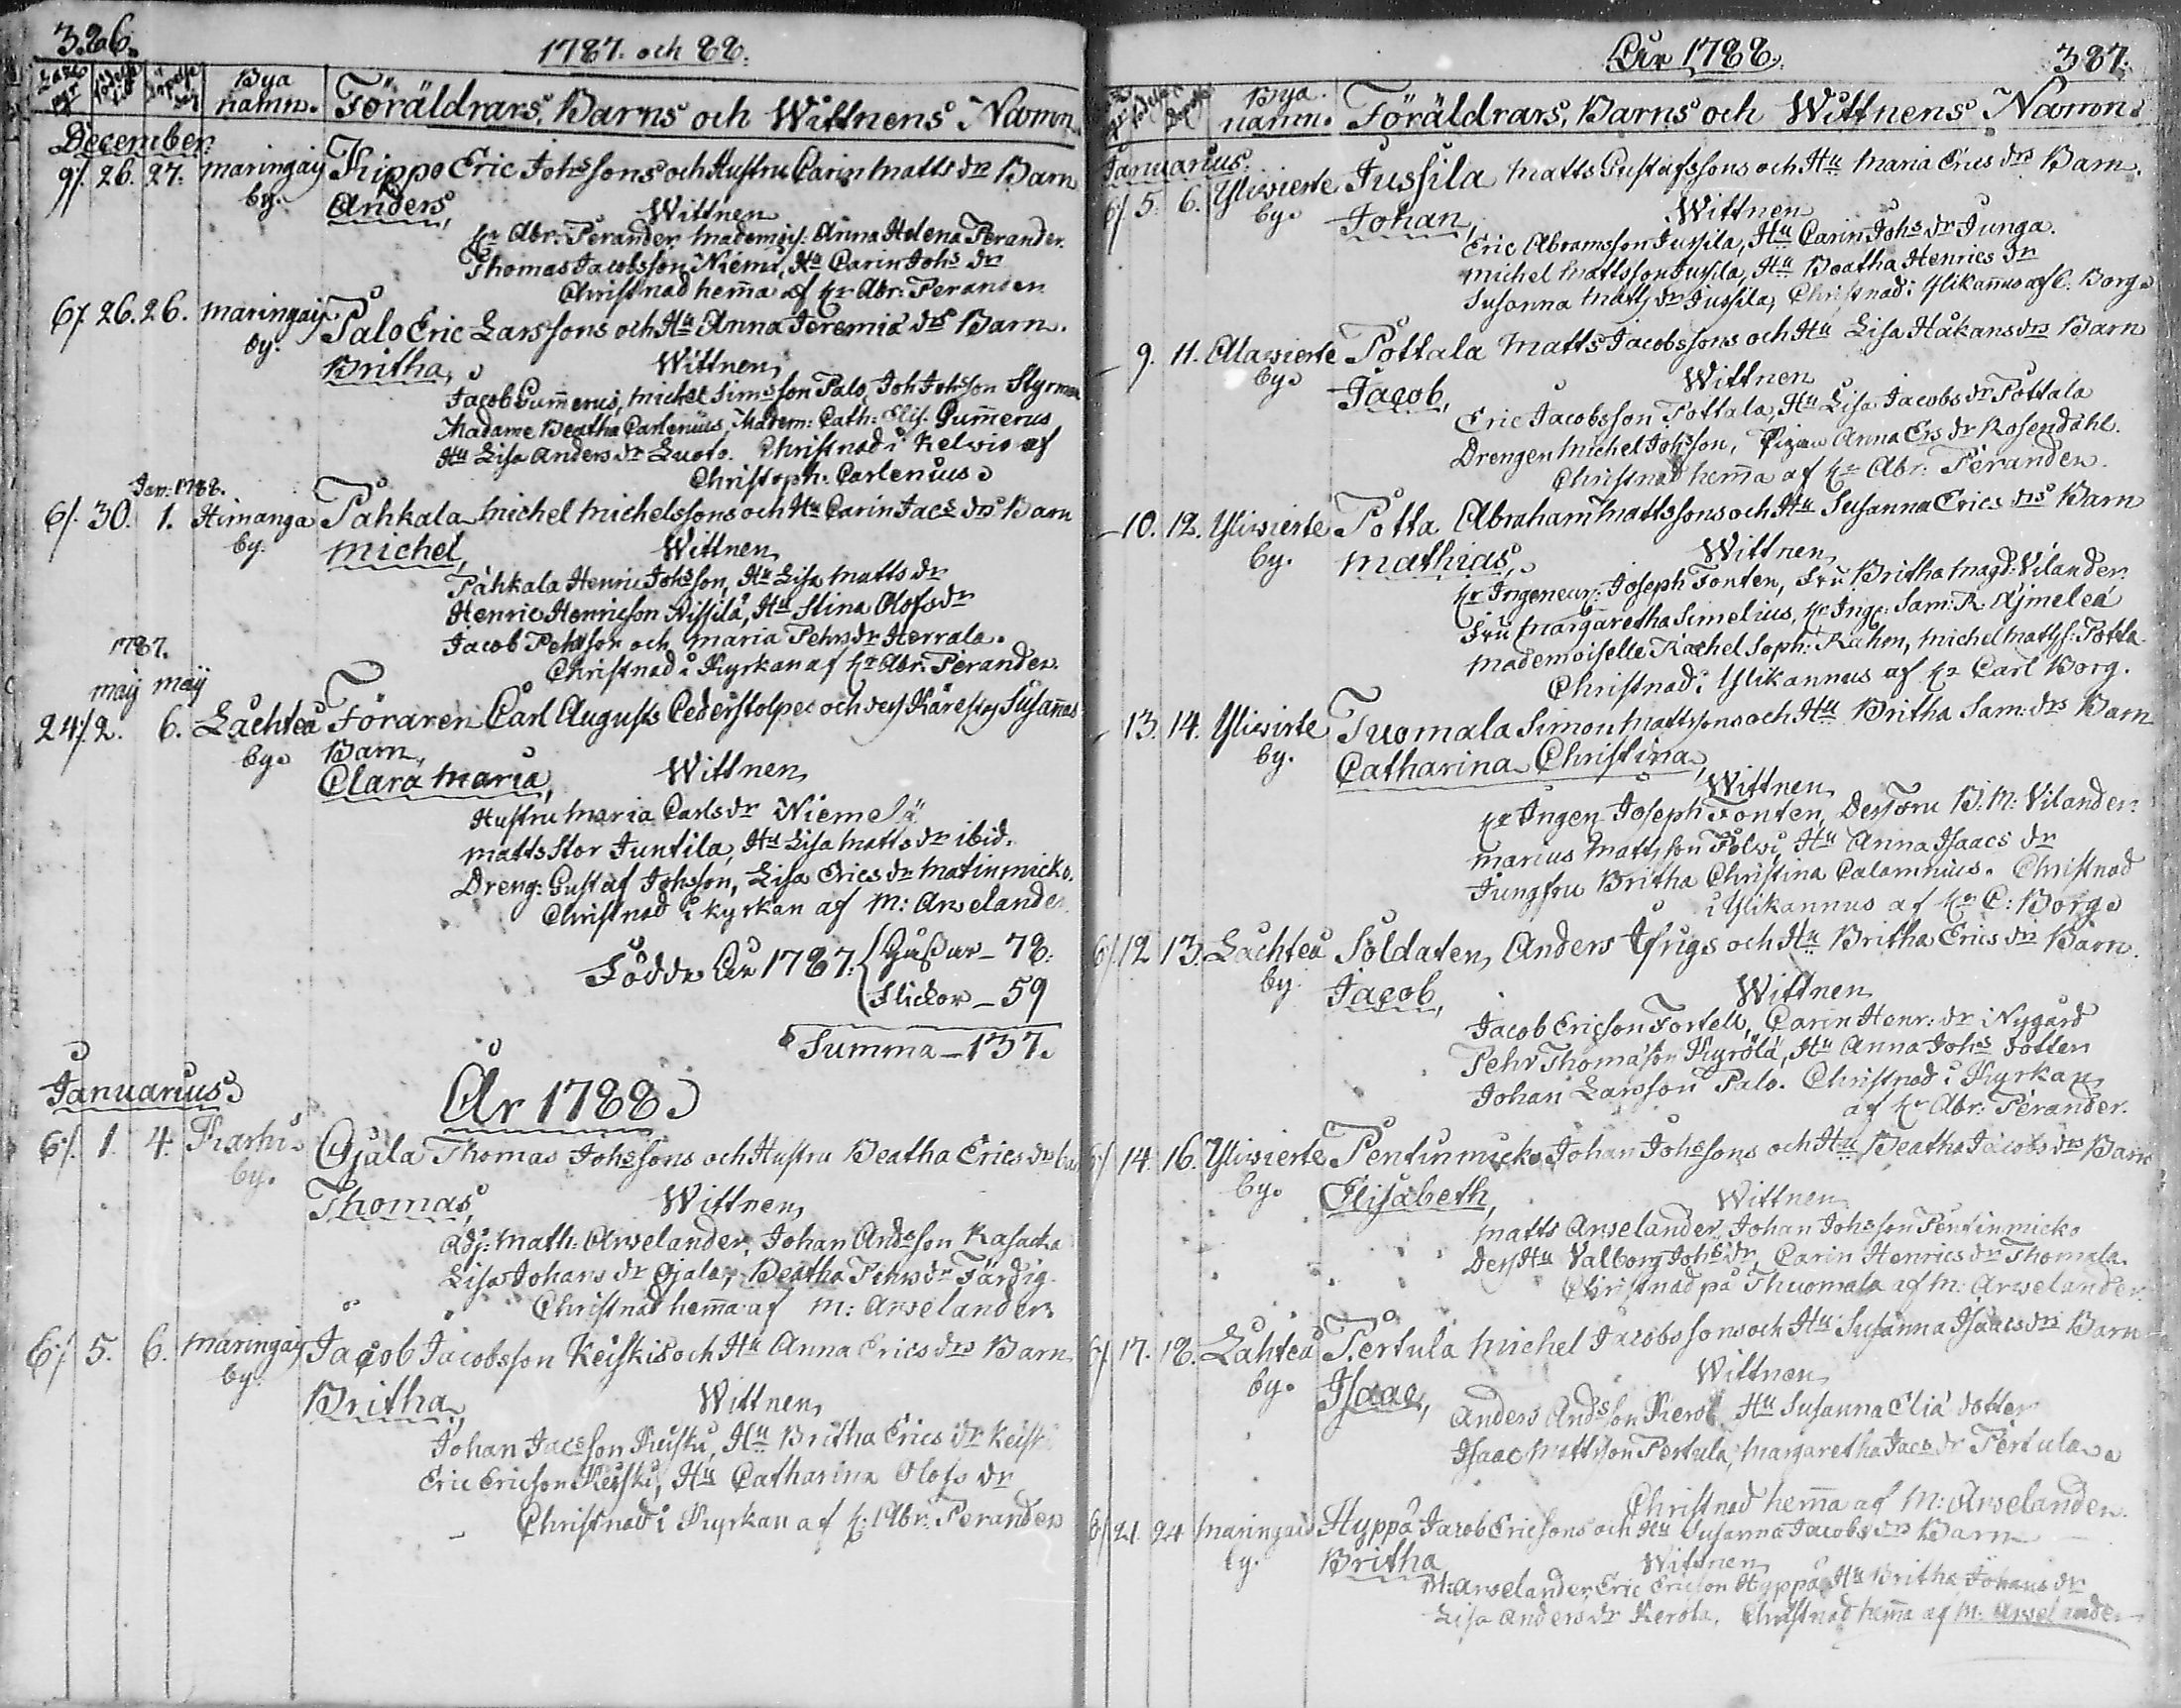 326.
1787. och 88.
födelse tid
Bya namn.
Föräldrars, Barns och Wittnens Namn.
December.
9/. 26. 27. maringais by. Hippo Eric Johssons och Hustru Carin Matts drs Barn
Anders, Wittnen
Hr Abr: Perander, Mademois: Anna Helena Perander.
Thomas Jacobsson Niemi, Hu Carin Johs dr
Christnad hem̄a af Hr Abr: Perander
6/. 26. 26. maringais by. Palo Eric Larssons och Hu Anna Jeremiæ drs Barn.
Britha, Wittnen,
Jacob Gum̄erus, Michel Simsson Palo, Joh Johsson Styrman
Madame Beatha Carlenius, Madem: Cath: Elis. Gum̄erus
Hu Lisa Anders dr Luoto. Christnad i Kelvio af
Christoph: Carlenius.
Jan: 1788.
6/. 30. 1. Himanga by. Pahkala Michel Michelssons och Hu Carin Jacs drs Barn
Michel, Wittnen
Pahkala Henric Johsson, Hu Lisa Matts dr
Henric Henricson Nissilä, Hu Stina Olofs dr
Jacob Pehrson och Maria Pehrs dr Herrala.
Christnad i Kyrkan af Hr Abr: Perander.
1787.
maij maij
24/. 2. 6. Lachteå by. Föraren Carl August Cederstolpes och dess Kärestas Susan̄as
Barn,
Clara Maria, Wittnen
Hustru Maria Carls dr Niemelä
Matts Stor Juntila, Hu Lisa Matts dr ibid.
Dreng: Gustaf Johsson, Lisa Erics dr Matinmicko.
Christnad i kyrkan af M: Arvelander
Födde År 1787: Gåssar – 78.
Flickor – 59
Summa – 137.
Januarius. År 1788.
6/. 1. 4. Karhi by. Ojala Thomas Johssons och Hustru Beatha Erics drs
Thomas, Wittnen,
Adj: Math: Arvelander, Johan Andsson Kasacka
Lisa Johans dr Ojala, Beatha Pehrs dr Färdig
Christnad hem̄a af M: Arvelander.
6/. 5. 6. maringais by. Jacob Jacobsson Keiskis och Hu Anna Erics drs Barn
Britha, Wittnen,
Johan Jacsson Keiski, Hu Britha Erics dr Keiski
Eric Ericson Keiski, Hu Catharina Olofs dr
Christnad i Kyrkan af H: Abr: Perander
År 1788. 387.
Bya namn. Föräldrars, Barns och Wittnens Namn.
Januarius.
6/ 5. 6. Yliwierte by. Jussila Matts Gustafssons och Hu Maria Erics drs Barn.
Johan, Wittnen
Eric Abramsson Jussila, Hu Carin Johs dr Junga.
Michel Mattsson Jussila, Hu Beatha Henrics dr
Susanna Matts dr Jussila, Christnad i Ylikan̄us af C. Borg
9. 11. Alawierte by. Pottala Matts Jacobssons och Hu Lisa Håkans drs Barn
Jacob, Wittnen
Eric Jacobsson Pottala, Hu Lisa Jacobs dr Pottala
Drengen Michel Johsson, Pigan Anna Ers dr Rosendahl.
Christnad hem̄a af Hr Abr: Perander.
10. 12. Yliwierte by. Potta Abraham Mattssons och Hu Susanna Erics drs Barn
Mathias, Wittnen,
Hr Ingeneur: Joseph Fonten, Fru Britha Magd: Vilander.
Fru Margaretha Simelius, Hr Inge: Sam: R. Ajmelea
Mademoiselle Rachel Soph: Richon, Michel Mattss: Potta
Christnad i Ylikannus af Hr Carl Borg.
13. 14. Yliwierte by. Tuomala Simon Mattssons och Hu Britha Sam: drs Barn
Catharina Christina, Wittnen,
Hr Ingen Joseph Fonten, Dess Fru B: M: Vilander:
Marcus Mattsson Polso, Hu Anna Isaacs dr
Jungfru Britha Christina Calamnius. Christnad
i Ylikannus af Hr C: Borg
6/. 12 13. Lachteå by. Soldaten, Anders Ifrigs och Hu Britha Erics drs Barn.
Jacob, Wittnen
Jacob Ericson Fortell, Carin Henr: dr Nygård
Pehr Thomasson Kyrölä, Hu Anna Johs dotter
Johan Larsson Palo. Christnad i Kyrkan
af Hr Abr: Perander.
6/ 14. 16. Yliwierte by. Pentinmicko Johan Johssons och Hu Beatha Jacobs drs Barn
Elisabeth, Wittnen
Matts Arvelander, Johan Johsson Pentinmicko
Dess Hu Valborg Johs dr, Carin Henrics dr Thomala.
Christnad på Thuomala af M: Arvelander.
6/. 17. 18. Lahteå by. Pertula Michel Jacobssons och Hu Susanna Isaacs drs Barn
Isaac, Wittnen
Anders Andsson Kerol, Hu Susanna Eliæ dotter
Isaac Mattsson Pertula, Margaretha Jacs dr Pertula.
Christnad hem̄a af M: Arvelander.
6/ 21. 24 maringais by. Hyppä Jacob Ericsons och Hu Susanna Jacobs drs Barn
Britha Wittnen
M: Arvelander, Eric Ericson Hyppä, Hu Britha Johans dr
Lisa Anders dr Kerola. Christnad hem̄a af M: Arvelander